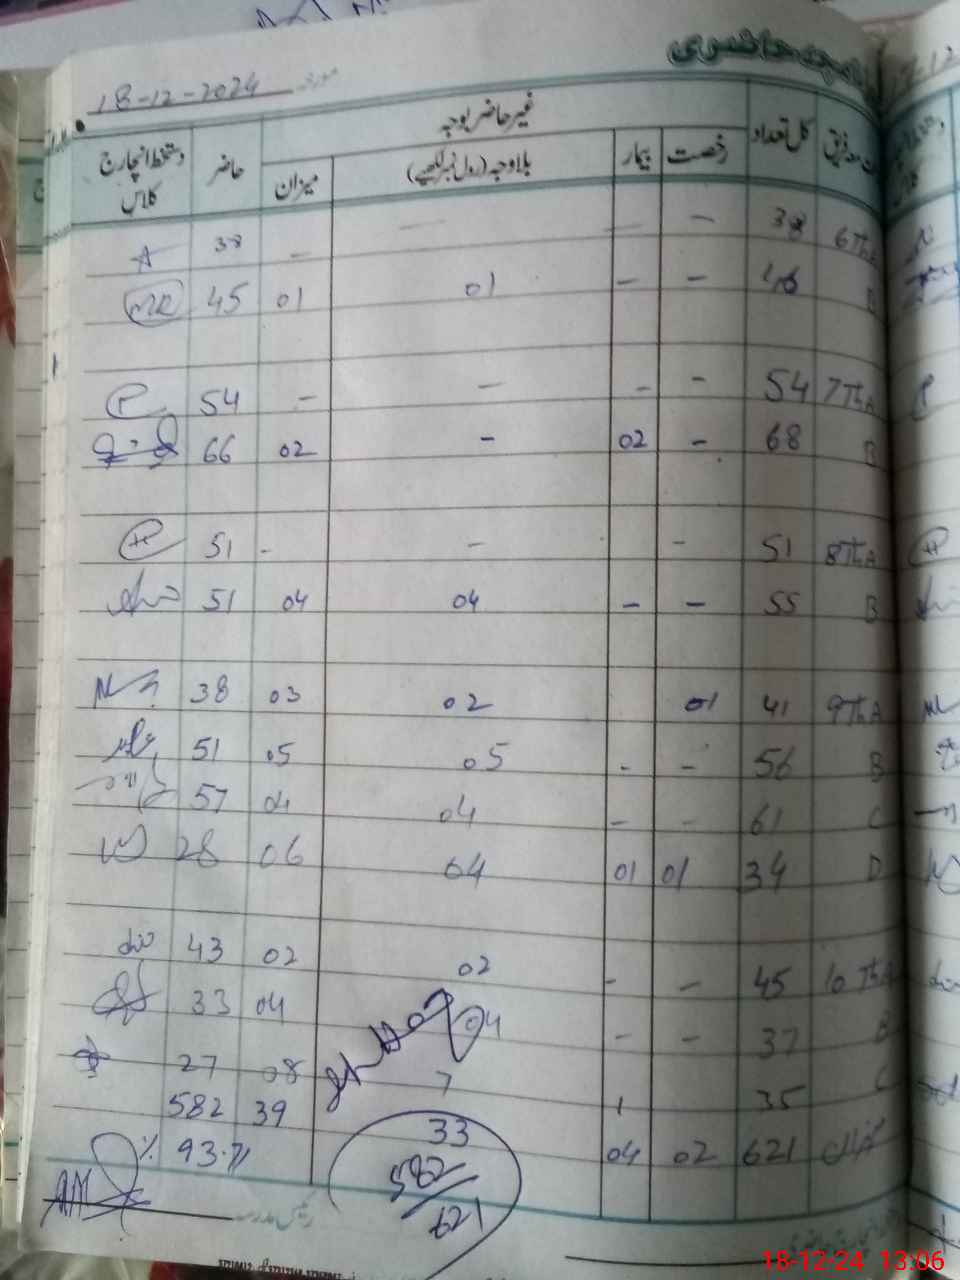 حاضری
18-12-2024 مورخہ
جماعت معہ فریق کل تعداد غیر حاضر بوجہ حاضر دستخط انچارج کلاس
رخصت بیمار بلاوجہ (رول نمبر لکھیے) میزان
6Th A 38 - - - - 38
B 46 - - 01 01 45
7Th A 54 - - - - 54
B 68 - 02 - 02 66
8Th A 51 - - - 51
B 55 - - 04 04 51
9Th A 41 01 02 03 38
B 56 - - 05 05 51
C 61 - - 04 04 57
D 34 01 01 04 06 28
10 Th A 45 - - 02 02 43
B 37 - - 04 04 33
C 35 1 7 08 27
میزان 621 02 04 33 39 582
582/621
93.7 %
رئیس مدرسہ
18-12-24 13:06